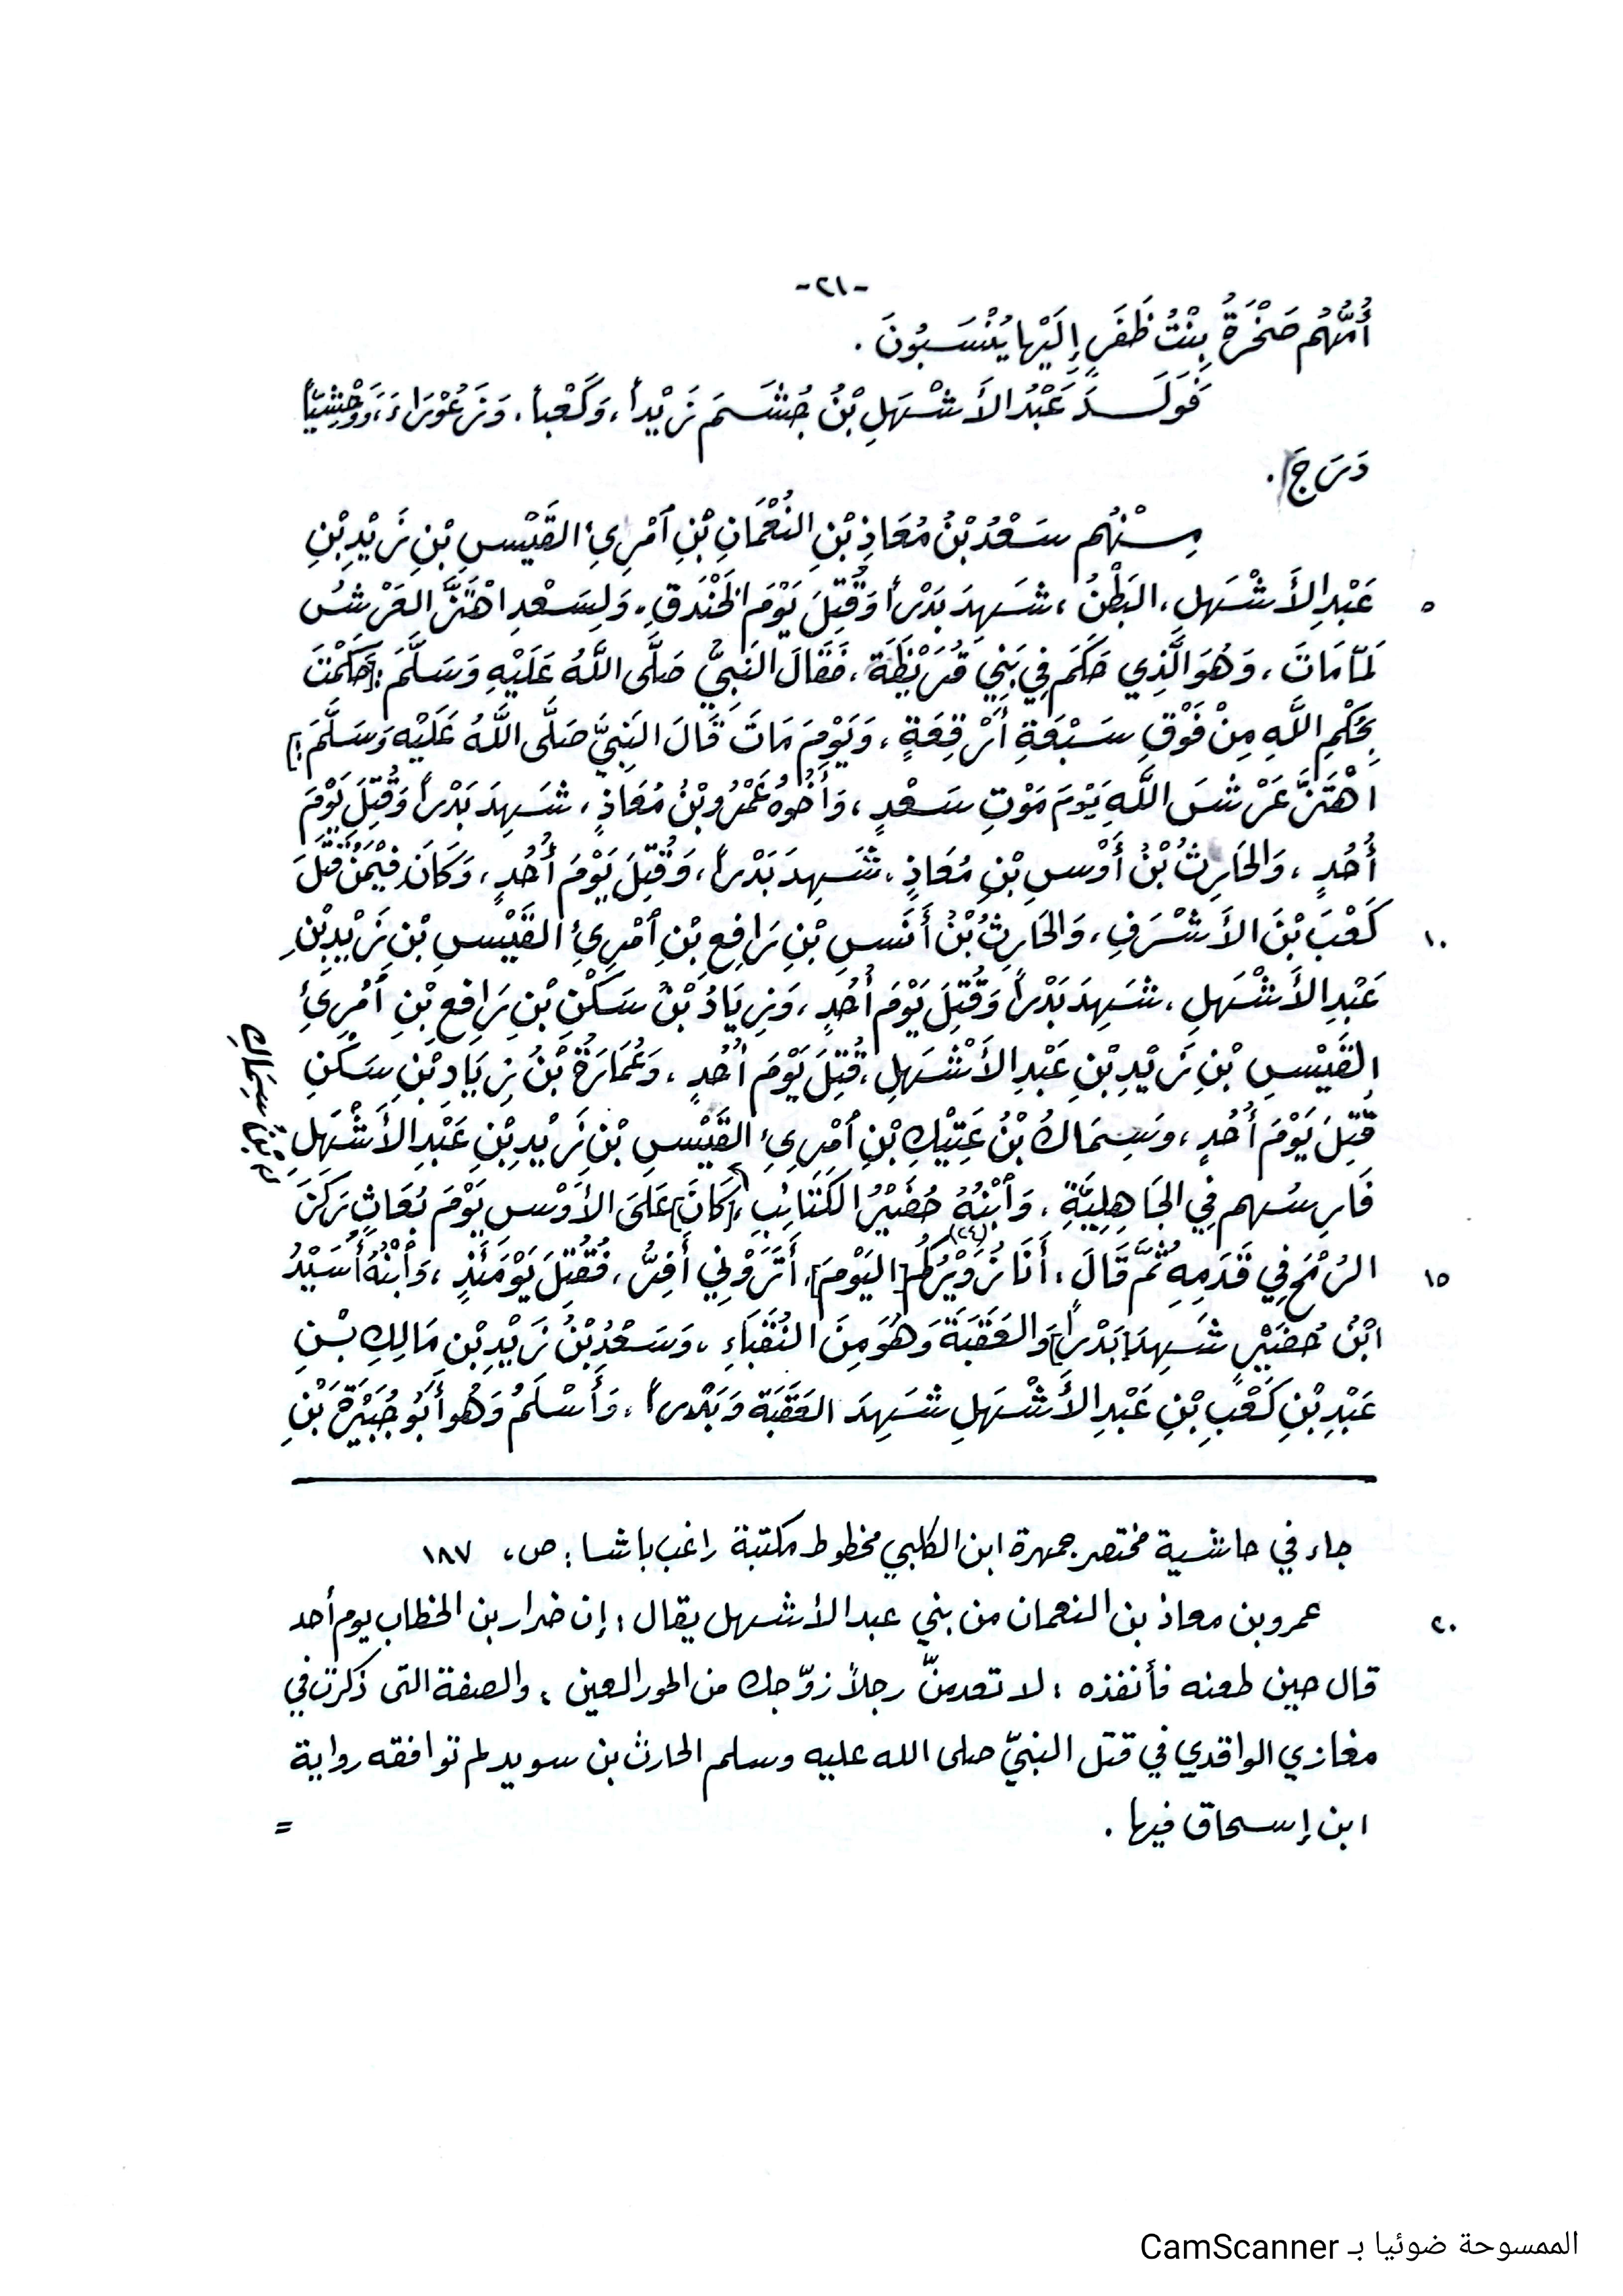 -٢١-
أُمُّهُم صَخْرَةُ بِنْتُ ظَفَرٍ إِلَيْها يُنْسَبُونَ .
فَوَلَدَ عَبْدُ الأَشْهَلِ بْنُ جُشَمَ زَيْداً، وَكَعْباً، وَزَعُوْرَاءَ، وَوَحْشِيّاً
دَرَجَ .
مِنْهُم سَعْدُ بْنُ مُعَاذِ بْنِ النُعْمَانِ بْنِ ٱمْرِئِ القَيْسِ بْنِ زَيْدِ بْنِ
٥ عَبْدِ الأَشْهَلِ، البَطْنُ، شَهِدَ بَدْراً وَقُتِلَ يَوْمَ الخَنْدَقِ، وَلِسَعْدِ اهْتَزَّ العَرْشُ
لَمّا مَاتَ، وَهُوَ الَّذِي حَكَمَ فِي بَنِي قُرَيْظَةَ، فَقَالَ النَبِيُّ صَلَّى اللَّهُ عَلَيْهِ وَسَلَّمَ: [حَكَمْتَ
بِحُكْمِ اللَّهِ مِنْ فَوْقِ سَبْعَةِ أَرْقِعَةٍ، وَيَوْمَ مَاتَ قَالَ النَبِيُّ صَلَّى اللَّهُ عَلَيْهِ وَسَلَّمَ:]
اهْتَزَّ عَرْشُ اللَّهِ يَوْمَ مَوْتِ سَعْدٍ، وَأَخُوهُ عَمْرُو بْنُ مُعَاذٍ، شَهِدَ بَدْراً وَقُتِلَ يَوْمَ
أُحُدٍ، وَالحَارِثُ بْنُ أَوْسِ بْنِ مُعَاذٍ، شَهِدَ بَدْراً، وَقُتِلَ يَوْمَ أُحُدٍ، وَكَانَ فِيْمَنْ قَتَلَ
١٠ كَعْبَ بْنَ الأَشْرَفِ، وَالحَارِثُ بْنُ أَنَسِ بْنِ رَافِعِ بْنِ ٱمْرِئِ القَيْسِ بْنِ زَيْدِ بْنِ
عَبْدِ الأَشْهَلِ، شَهِدَ بَدْراً وَقُتِلَ يَوْمَ أُحُدٍ، وَزِيَادُ بْنُ سَكَنِ بْنِ رَافِعِ بْنِ ٱمْرِئِ
القَيْسِ بْنِ زَيْدِ بْنِ عَبْدِ الأَشْهَلِ، قُتِلَ يَوْمَ أُحُدٍ، وَعُمَارَةُ بْنُ زِيَادِ بْنِ سَكَنِ
قُتِلَ يَوْمَ أُحُدٍ، وَسِمَاكُ بْنُ عَتِيْكِ بْنِ ٱمْرِئِ القَيْسِ بْنِ زَيْدِ بْنِ عَبْدِ الأَشْهَلِ
فَارِسُهم فِي الجَاهِلِيَّةِ، وَٱبْنُهُ حُضَيْرُ الكَتَائِبِ، [كَانَ] عَلَى الأَوْسِ يَوْمَ بُعَاثٍ رَكَزَ
بْنُ سِمَاكِ
١٥ الرُمْحَ فِي قَدَمِهِ ثُمَّ قَالَ: أَنَا زَوَيْرُكُم (٢٤) [اليَوْمَ]، أَتَرَوْنِي أَفِرُّ، فَقُتِلَ يَوْمَئِذٍ، وَٱبْنُهُ أُسَيْدُ
ابْنُ حُضَيْرٍ شَهِدَ [بَدْراً] وَالعَقَبَةَ وَهُوَ مِنَ النُقَبَاءِ، وَسَعْدُ بْنُ زَيْدِ بْنِ مَالِكِ بْنِ
عَبْدِ بْنِ كَعْبِ بْنِ عَبْدِ الأَشْهَلِ شَهِدَ العَقَبَةَ وَبَدْراً، وَأَسْلَمُ وَهُوَ أَبُو جُبَيْرَةَ بْنِ
جاء في حاشية مختصر جمهرة ابن الكلبي مخطوط مكتبة راغب باشا: ص، ١٨٧
٢٠ عمرو بن معاذ بن النعمان من بني عبد الأشهل يقال: إن ضرار بن الخطاب يوم أحد
قال حين طعنه فأنفذه: لا تعدمنّ رجلاً زوّجك من الحور العين، والصفة التى ذكرت في
مغازي الواقدي في قتل النبيّ صلى الله عليه وسلم الحارث بن سويد لم توافقه رواية
ابن إسحاق فيها .
=
الممسوحة ضوئيا بـ CamScanner